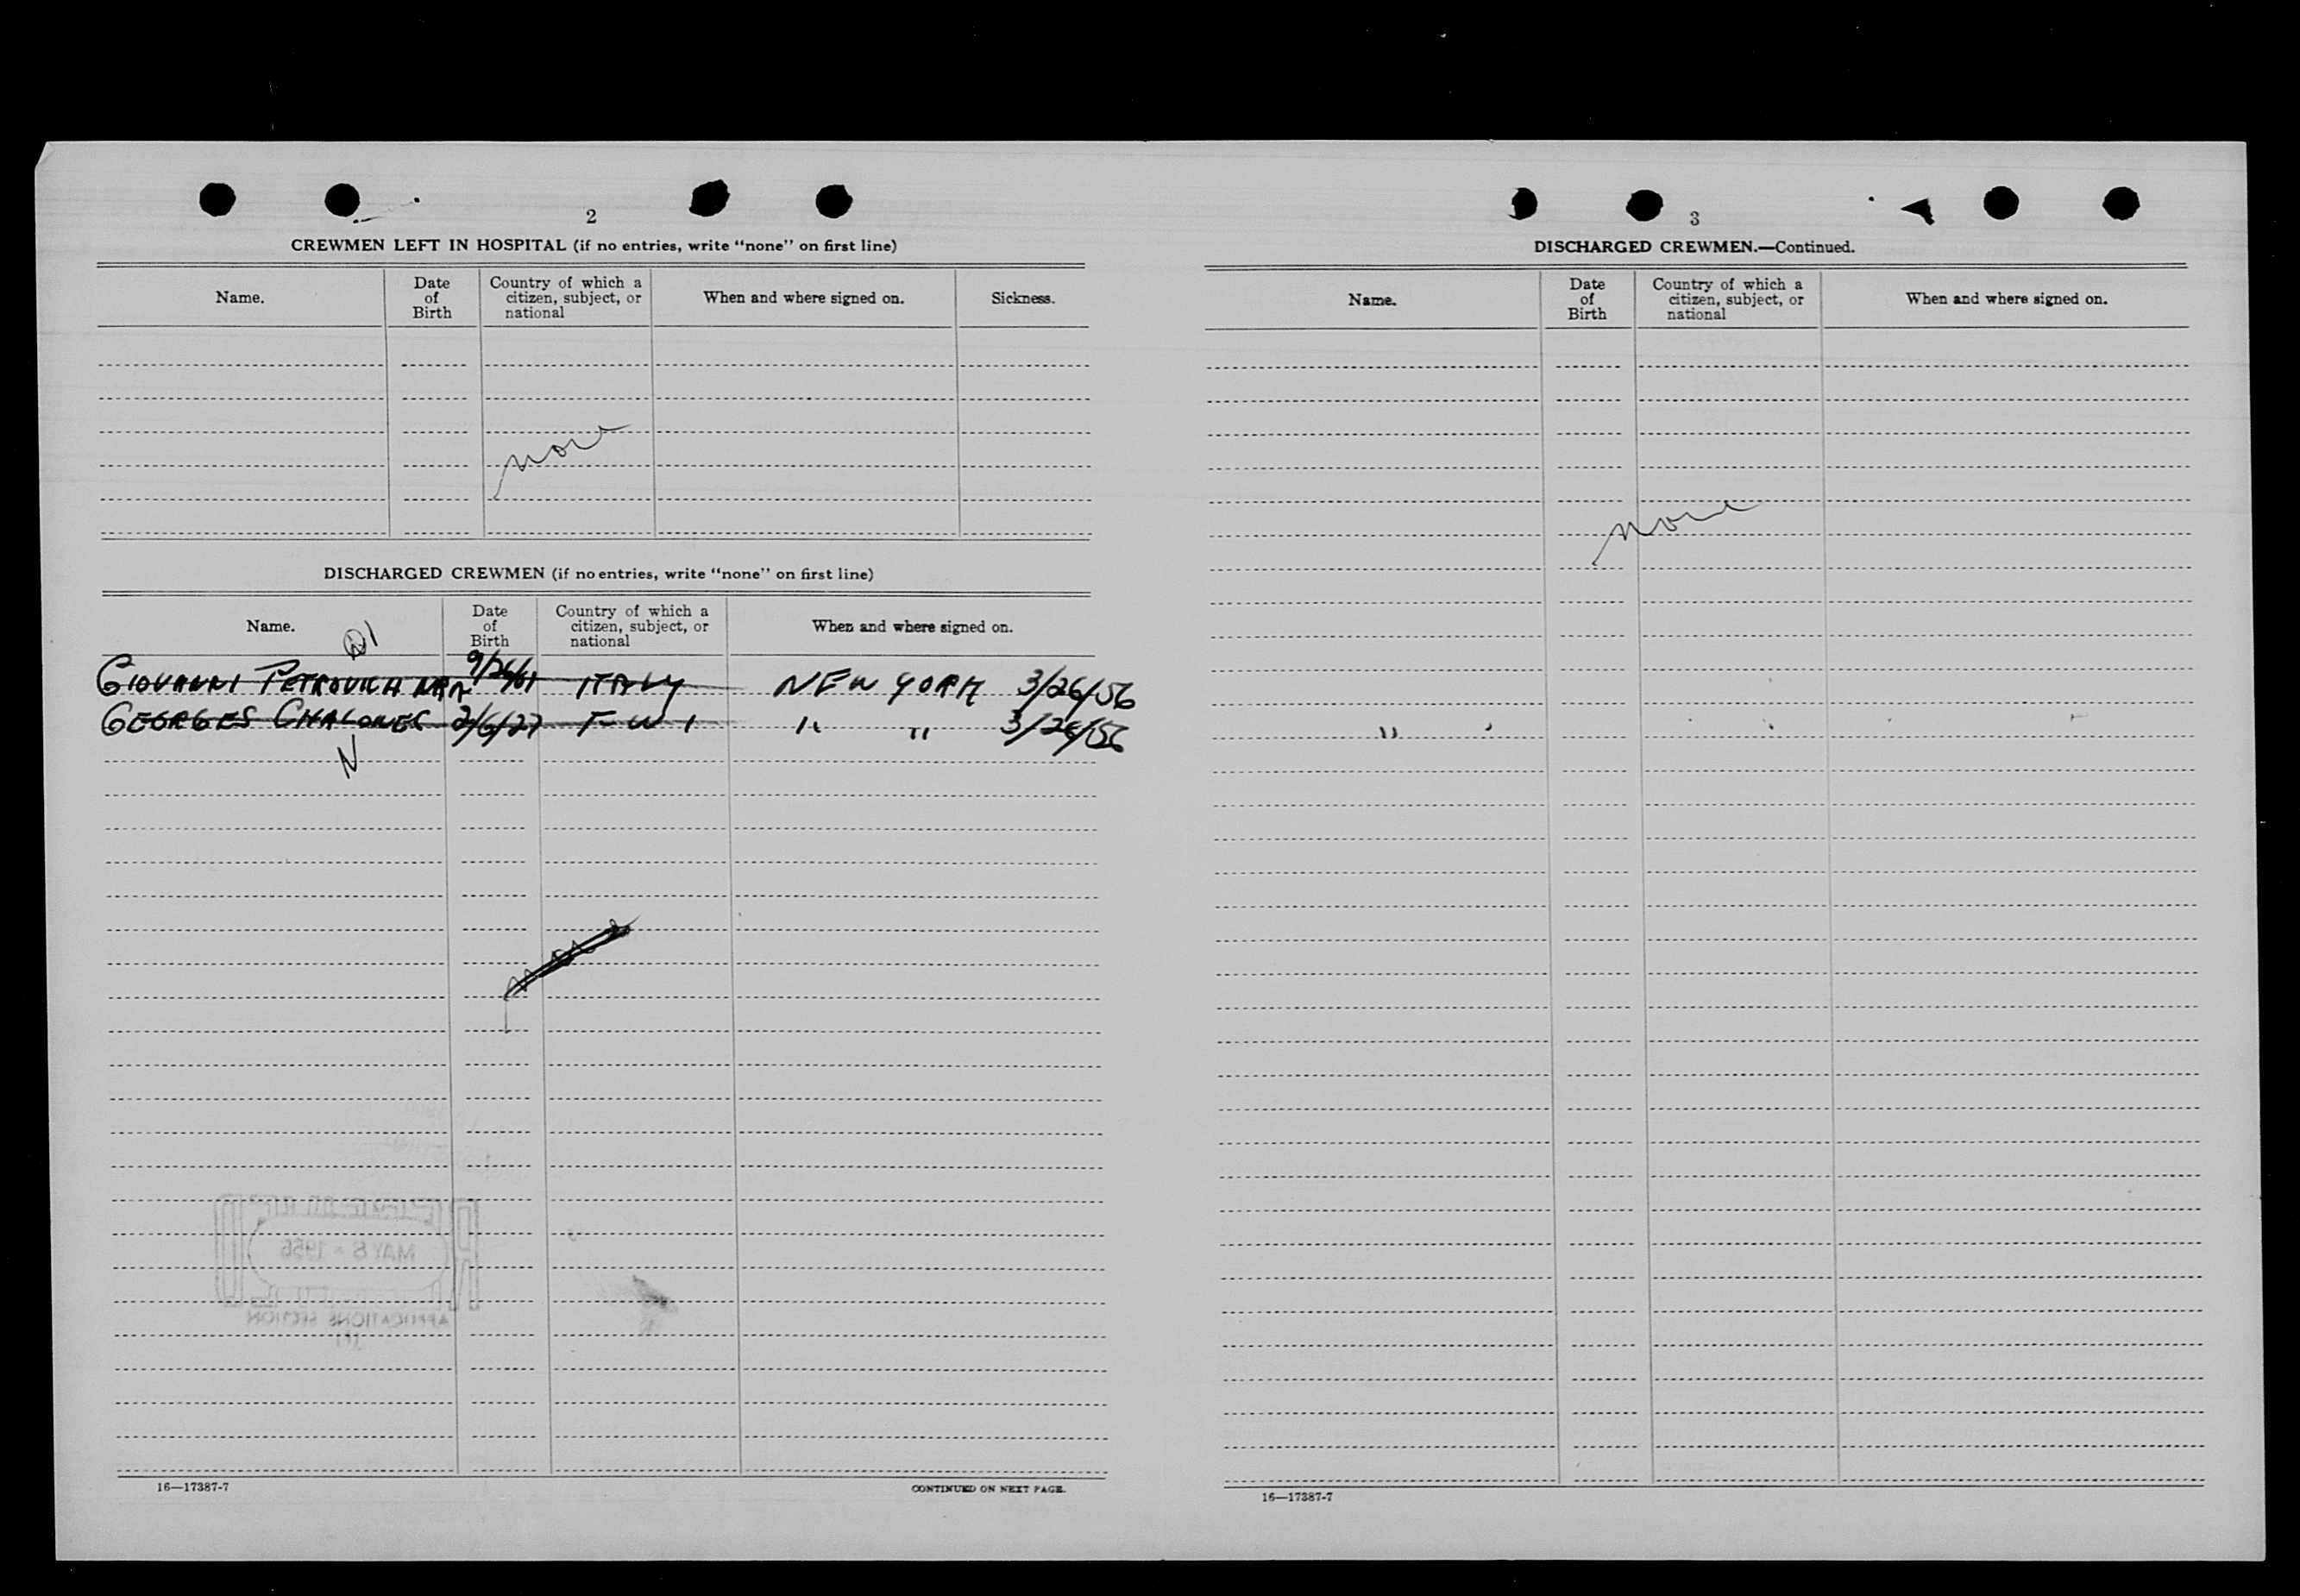 2
CREWMEN LEFT IN HOSPITAL (if no entries, write "none" on first line)
Name.
Date of Birth
Country of which a citizen, subject, or national
When and where signed on.
Sickness.
none
DISCHARGED CREWMEN (if no entries, write "none" on first line)
Name.
Date of Birth
Country of which a citizen, subject, or national
When and where signed on.
GIOVANNI PETROVICH ITALY NEW YORK 3/26/56
GEORGES 2/6/27 F W I " " 3/26/56
N
MAY 8 - 1956
APPLICATIONS SECTION
16—17387-7
CONTINUED ON NEXT PAGE.
3
DISCHARGED CREWMEN.—Continued.
Name.
Date of Birth
Country of which a citizen, subject, or national
When and where signed on.
none
16—17387-7